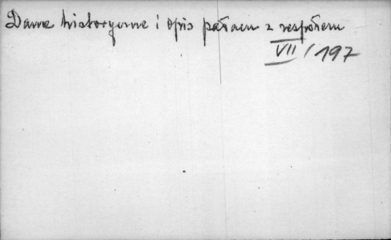 Dane historyczne i opis pałacu z zespołem
VII / 197